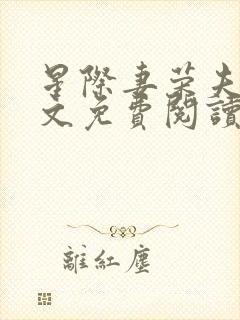 星際妻荣夫
文免費閱讀
離紅塵